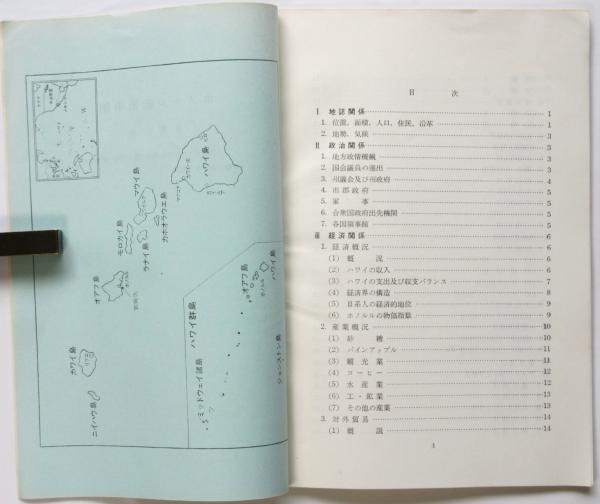 ハワイ島
マウイ島
カホオラウエ島
モロカイ島
ラナイ島
オアフ島
ホノルル
カワイ島
ニイハウ島
ハワイ群島
ハワイ島
オアフ島
ホノルル
ミッドウェイ諸島
ジョンストン島
目 次
Ⅰ 地誌関係 1
1. 位置、面積、人口、住民、沿革 1
2. 地勢、気候 3
Ⅱ 政治関係 3
1. 地方政情機観 3
2. 国会議員の選出 3
3. 州議会及び州政府 4
4. 市郡政府 5
5. 軍 事 5
6. 合衆国政府出先機関 5
7. 各国領事館 5
Ⅲ 経済関係 6
1. 経済概況 6
(1) 概 況 6
(2) ハワイの収入 6
(3) ハワイの支出及び収支バランス 7
(4) 経済界の構造 8
(5) 日系人の経済的地位 9
(6) ホノルルの物価指数 9
2. 産業概況 10
(1) 砂 糖 10
(2) パインアップル 11
(3) 観光業 11
(4) コーヒー 12
(5) 水産業 12
(6) 工・鉱業 13
(7) その他の産業 14
3. 対外貿易 14
(1) 概 説 14